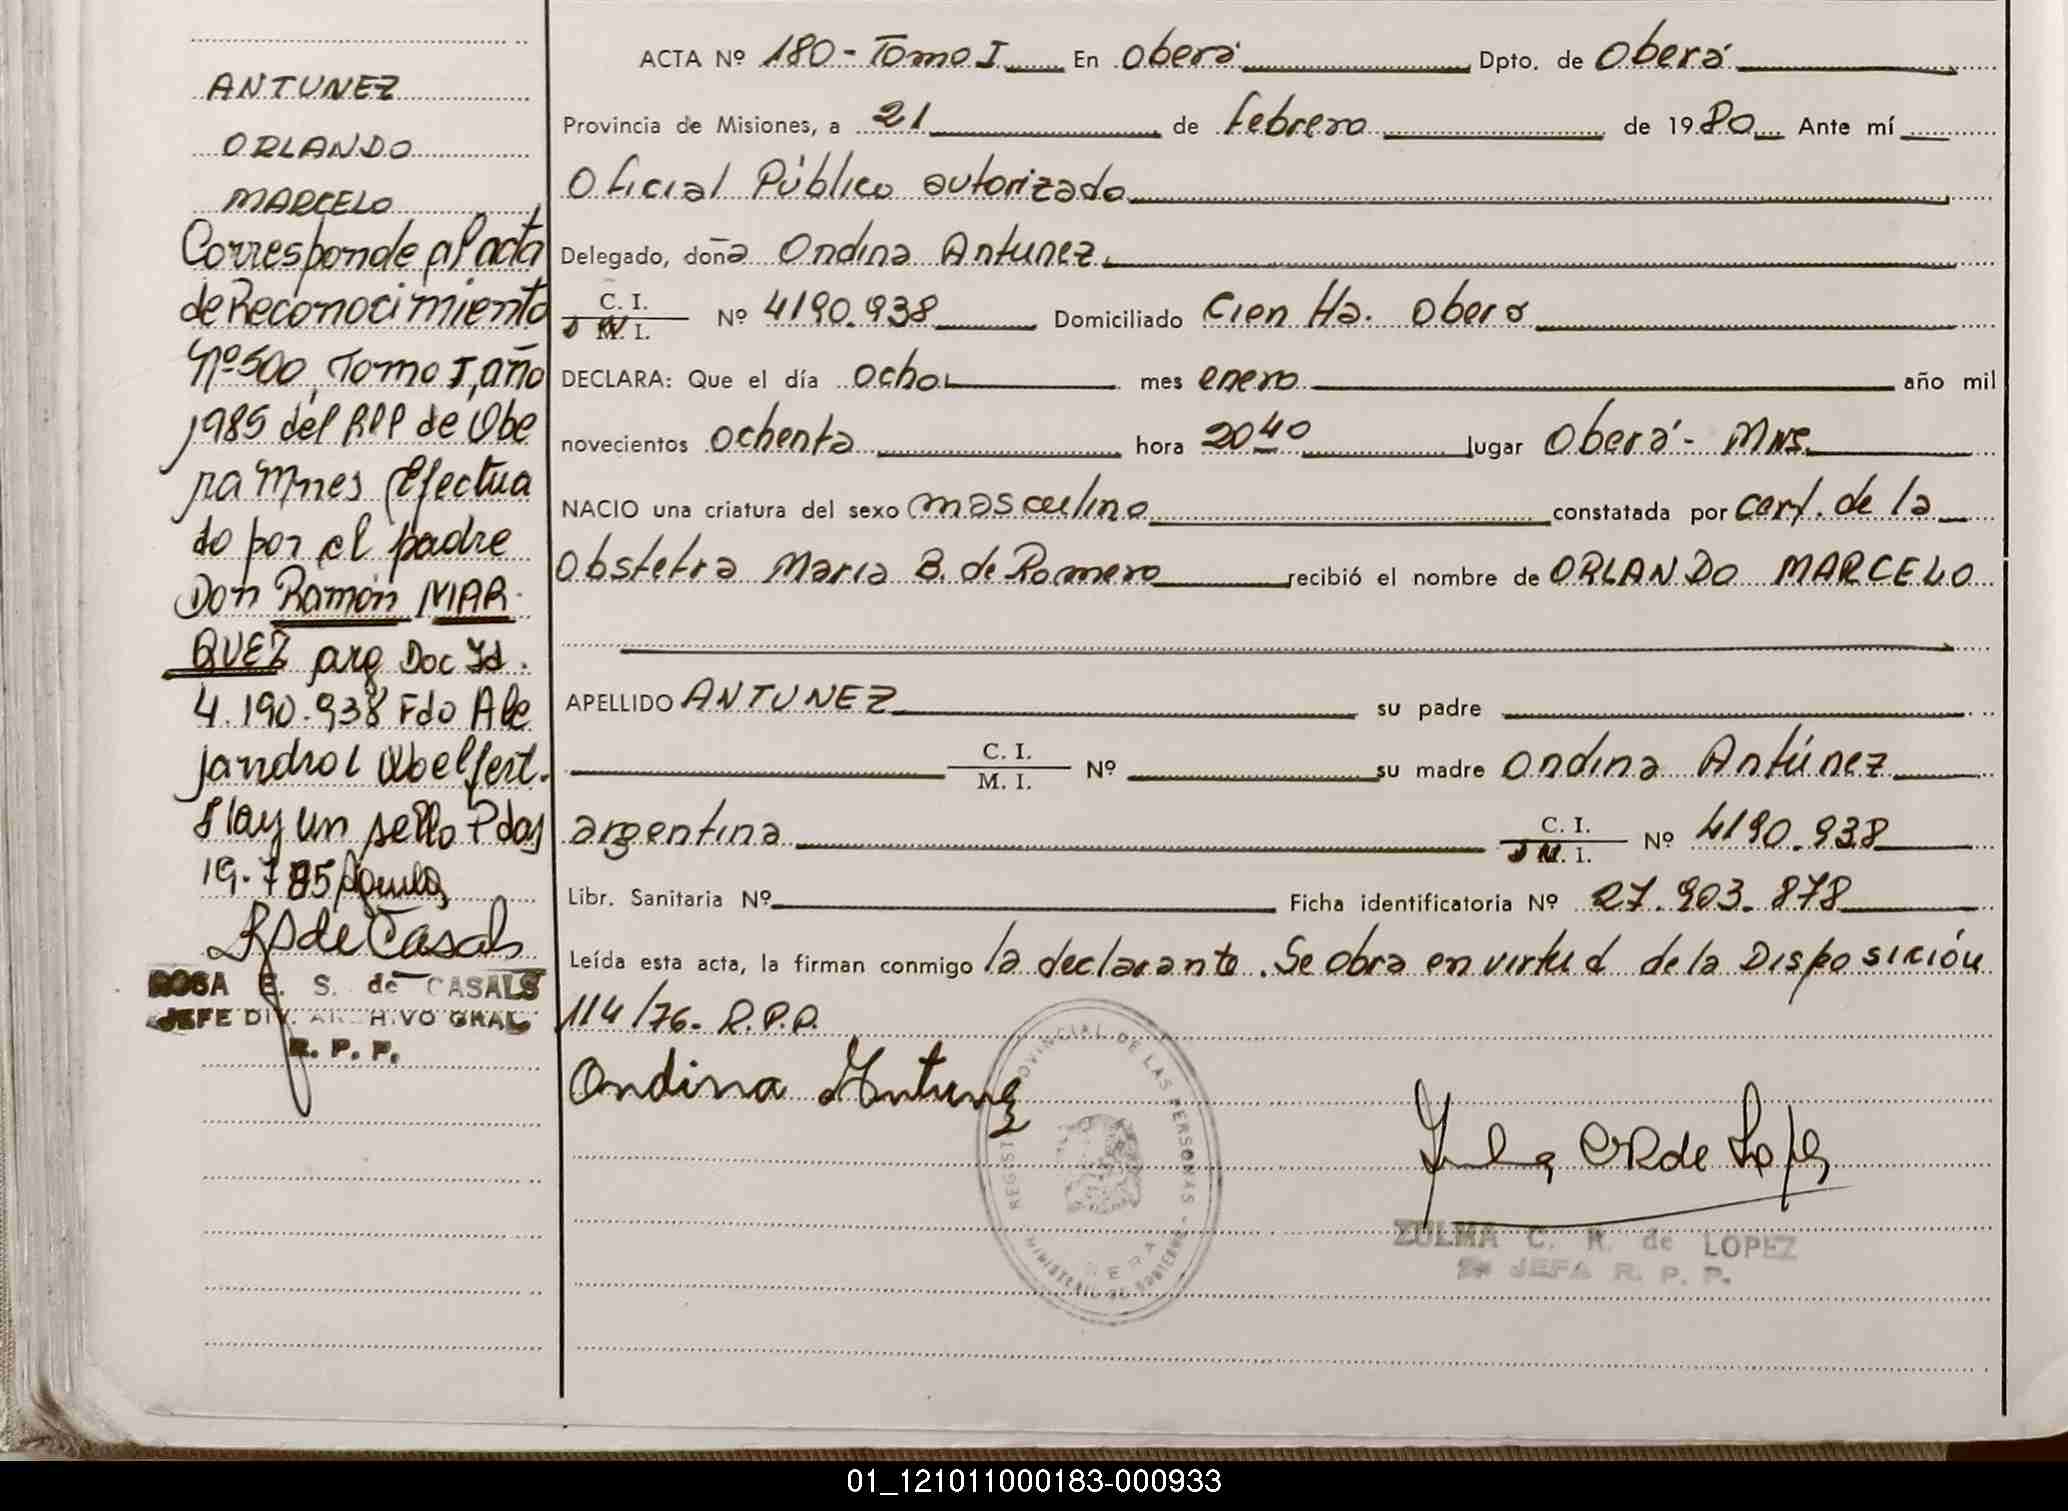 ANTUNEZ
ORLANDO
MARCELO
Corresponde al acta
de Reconocimiento
Nº 500, Tomo I, año
1985 del RPP de Obe
ra Mnes Efectua
do por el padre
Don Ramón MAR-
QUEZ arg Doc Id.
4.190.938 Fdo Ale
jandro Woelfert.
Hay un sello Pdas
19-7 85
RS de Casals
ROSA E. S. de CASALS
JEFE DIV. ARCHIVO GRAL
R. P. P.
ACTA Nº 180 - Tomo I En Oberá Dpto. de Oberá
Provincia de Misiones, a 21 de febrero de 1980 Ante mí
Oficial Público autorizado
Delegado, doña Ondina Antunez
C. I.
D M. I. Nº 4190.938 Domiciliado Cien Ha. Oberá
DECLARA: Que el día ocho mes enero año mil
novecientos ochenta hora 20 40 lugar Oberá - Mns.
NACIO una criatura del sexo masculino constatada por cert. de la
Obstetra Maria B. de Romero recibió el nombre de ORLANDO MARCELO
APELLIDO ANTUNEZ su padre
C. I.
M. I. Nº su madre Ondina Antúnez
argentina C. I.
D M. I. Nº 4190.938
Libr. Sanitaria Nº Ficha identificatoria Nº 27.903.878
Leída esta acta, la firman conmigo la declarante. Se obra en virtud de la Disposición
114/76- R.P.P.
Ondina Antunez
REGISTRO PROVINCIAL DE LAS PERSONAS - MINISTERIO DE GOBIERNO
OBERA
Zulma CR de Lopez
ZULMA C. R. de LOPEZ
JEFA R. P. P.
01_121011000183-000933